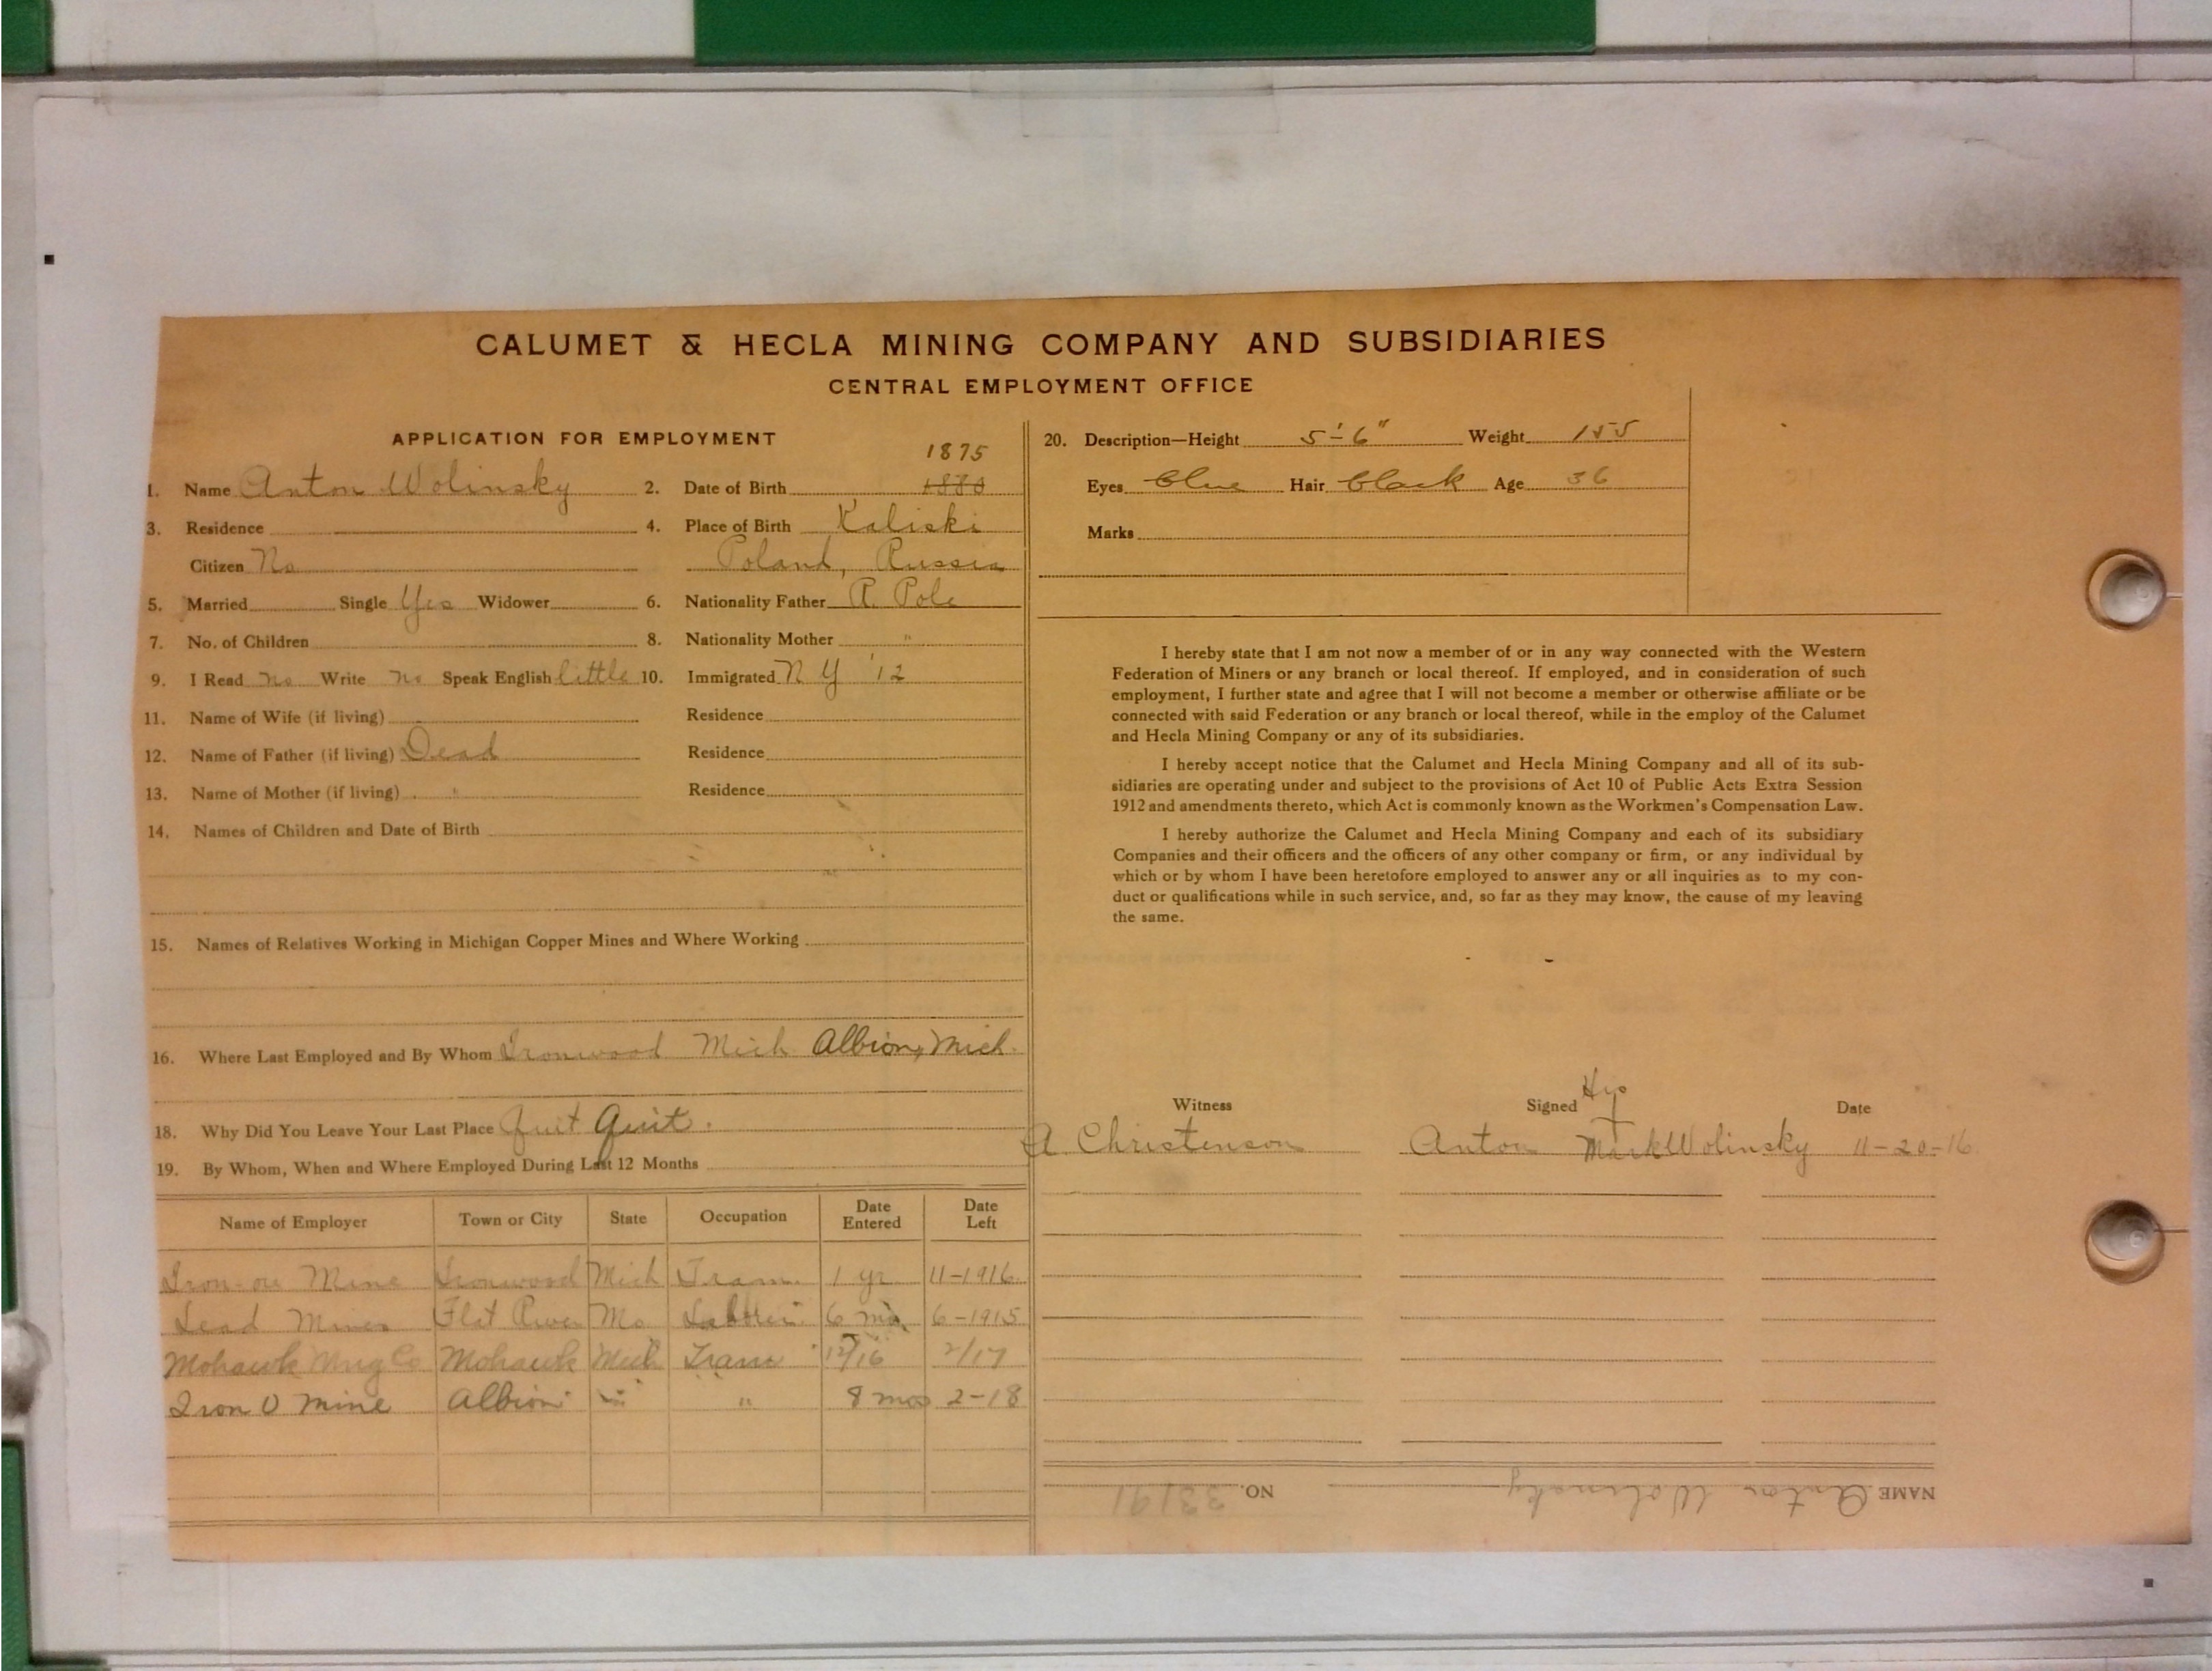 CALUMET & HECLA MINING COMPANY AND SUBSIDIARIES
CENTRAL EMPLOYMENT OFFICE
APPLICATION FOR EMPLOYMENT
1875
1. Name Anton Wolinsky 2. Date of Birth 1880
3. Residence 4. Place of Birth Kaliski
Citizen No Poland, Russia
5. Married Single Yes Widower 6. Nationality Father R. Pole
7. No. of Children 8. Nationality Mother "
9. I Read no Write no Speak English little 10. Immigrated N Y '12
11. Name of Wife (if living) Residence
12. Name of Father (if living) Dead Residence
13. Name of Mother (if living) " Residence
14. Names of Children and Date of Birth
15. Names of Relatives Working in Michigan Copper Mines and Where Working
16. Where Last Employed and By Whom Ironwood Mich Albion, Mich.
18. Why Did You Leave Your Last Place Quit Quit.
19. By Whom, When and Where Employed During Last 12 Months
Name of Employer Town or City State Occupation Date Entered Date Left
Iron-ore Mine Ironwood Mich Tram. 1 yr 11-1916.
Lead Mines Flat River Mo Laborer 6 mo. 6-1915
Mohawk Mng Co Mohawk Mich Tram 12/16 2/17
Iron O Mine Albion " " 8 mos 2-18
20. Description—Height 5'-6" Weight 155
Eyes Blue Hair Black Age 36
Marks
I hereby state that I am not now a member of or in any way connected with the Western
Federation of Miners or any branch or local thereof. If employed, and in consideration of such
employment, I further state and agree that I will not become a member or otherwise affiliate or be
connected with said Federation or any branch or local thereof, while in the employ of the Calumet
and Hecla Mining Company or any of its subsidiaries.
I hereby accept notice that the Calumet and Hecla Mining Company and all of its sub-
sidiaries are operating under and subject to the provisions of Act 10 of Public Acts Extra Session
1912 and amendments thereto, which Act is commonly known as the Workmen's Compensation Law.
I hereby authorize the Calumet and Hecla Mining Company and each of its subsidiary
Companies and their officers and the officers of any other company or firm, or any individual by
which or by whom I have been heretofore employed to answer any or all inquiries as to my con-
duct or qualifications while in such service, and, so far as they may know, the cause of my leaving
the same.
Witness Signed His Date
A Christenson Anton Mark Wolinsky 11-20-16
NAME Anton Wolinsky NO. 33191